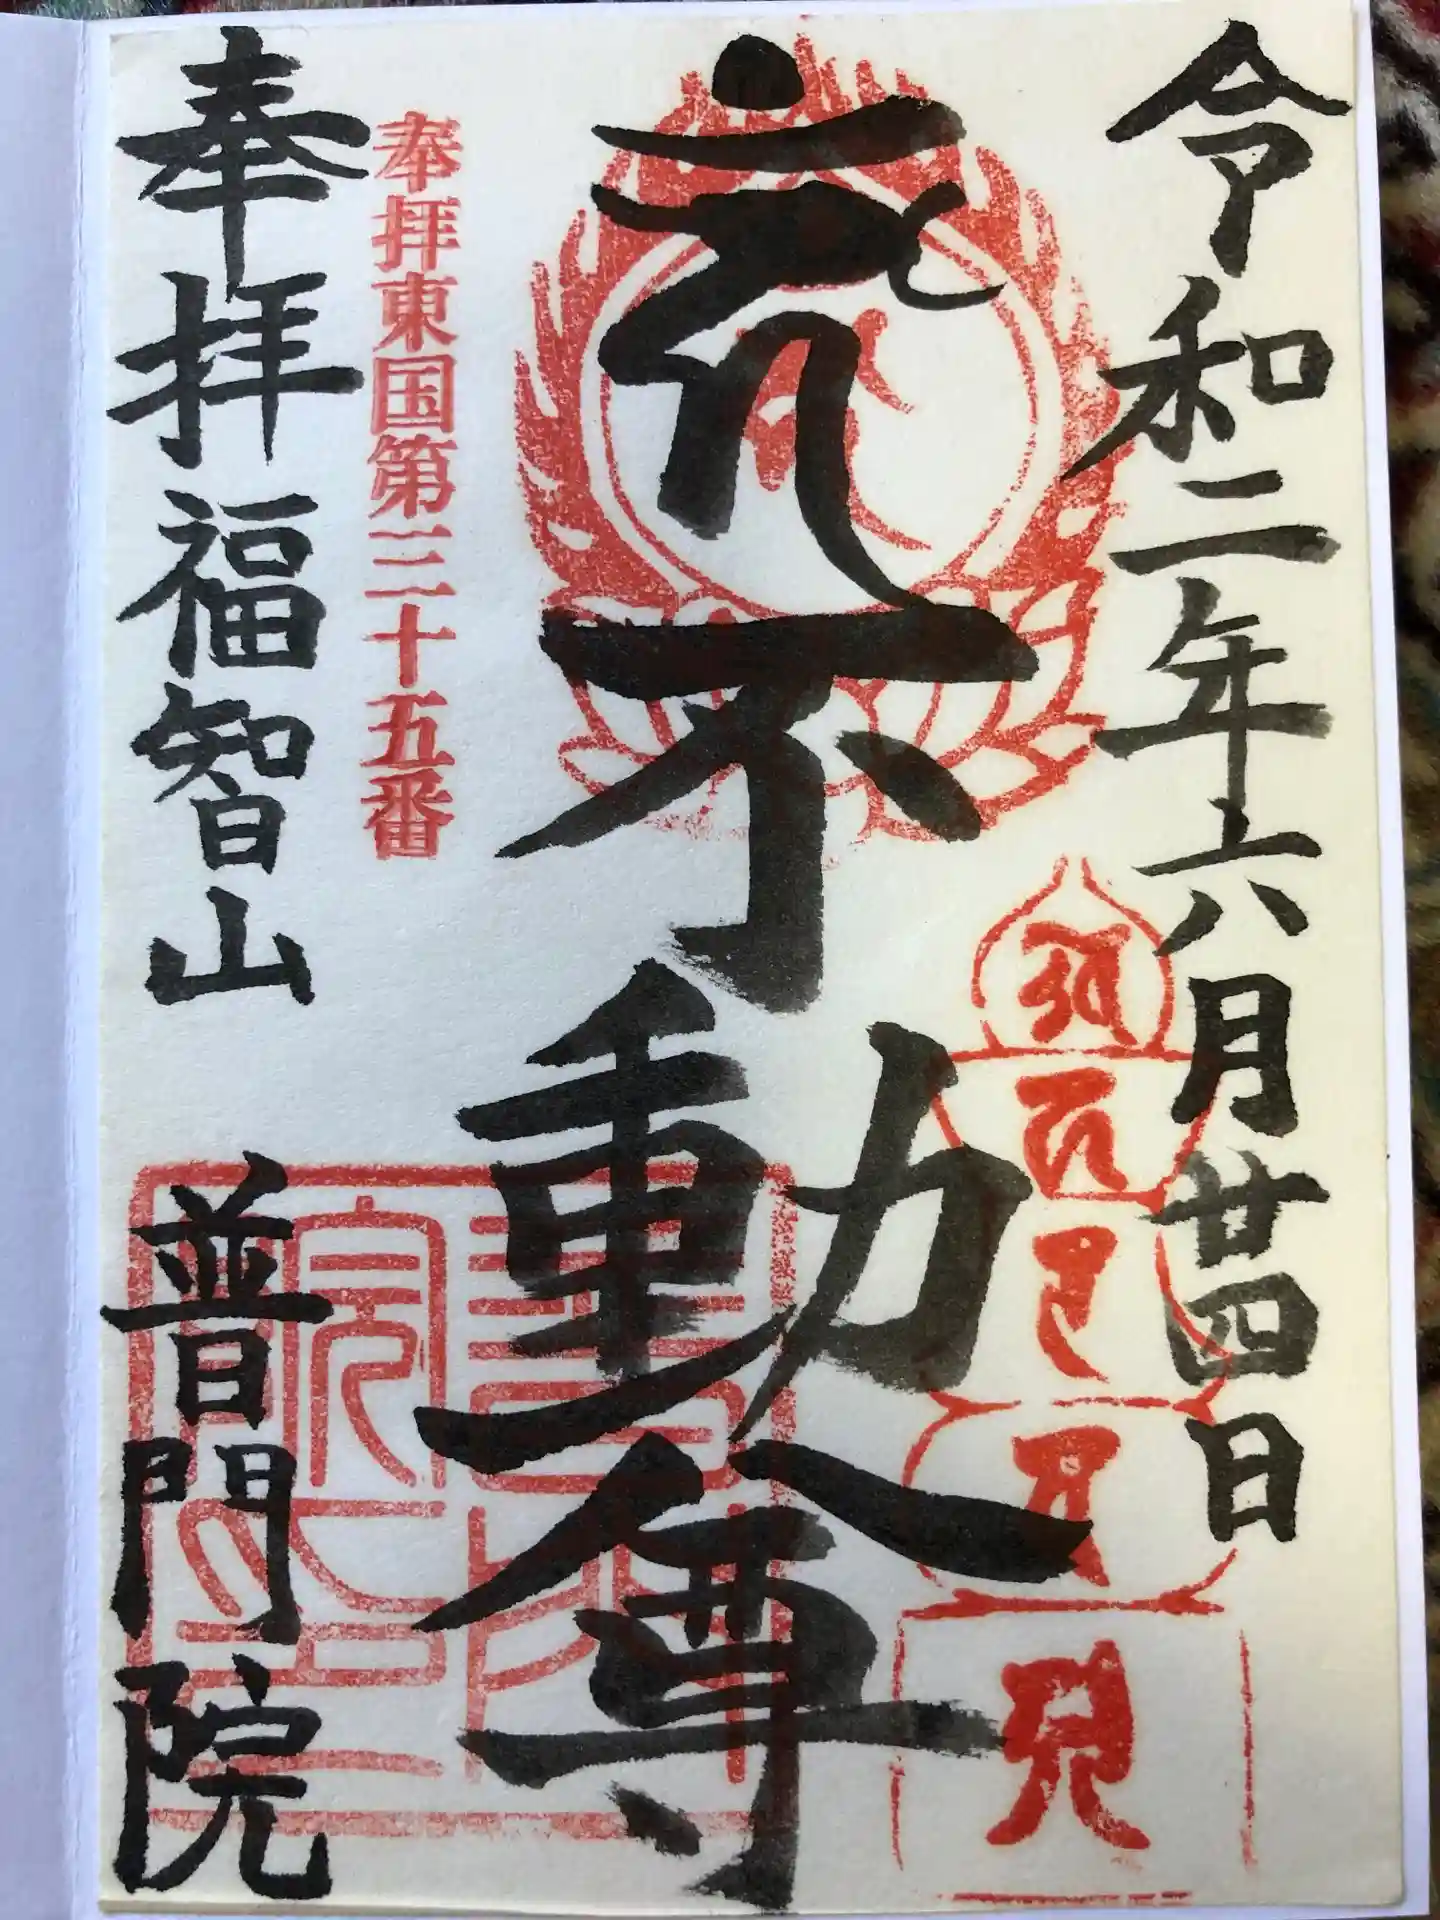 令和二年六月廿四日
不動尊
奉拝東国第三十五番
奉拝 福智山 普門院